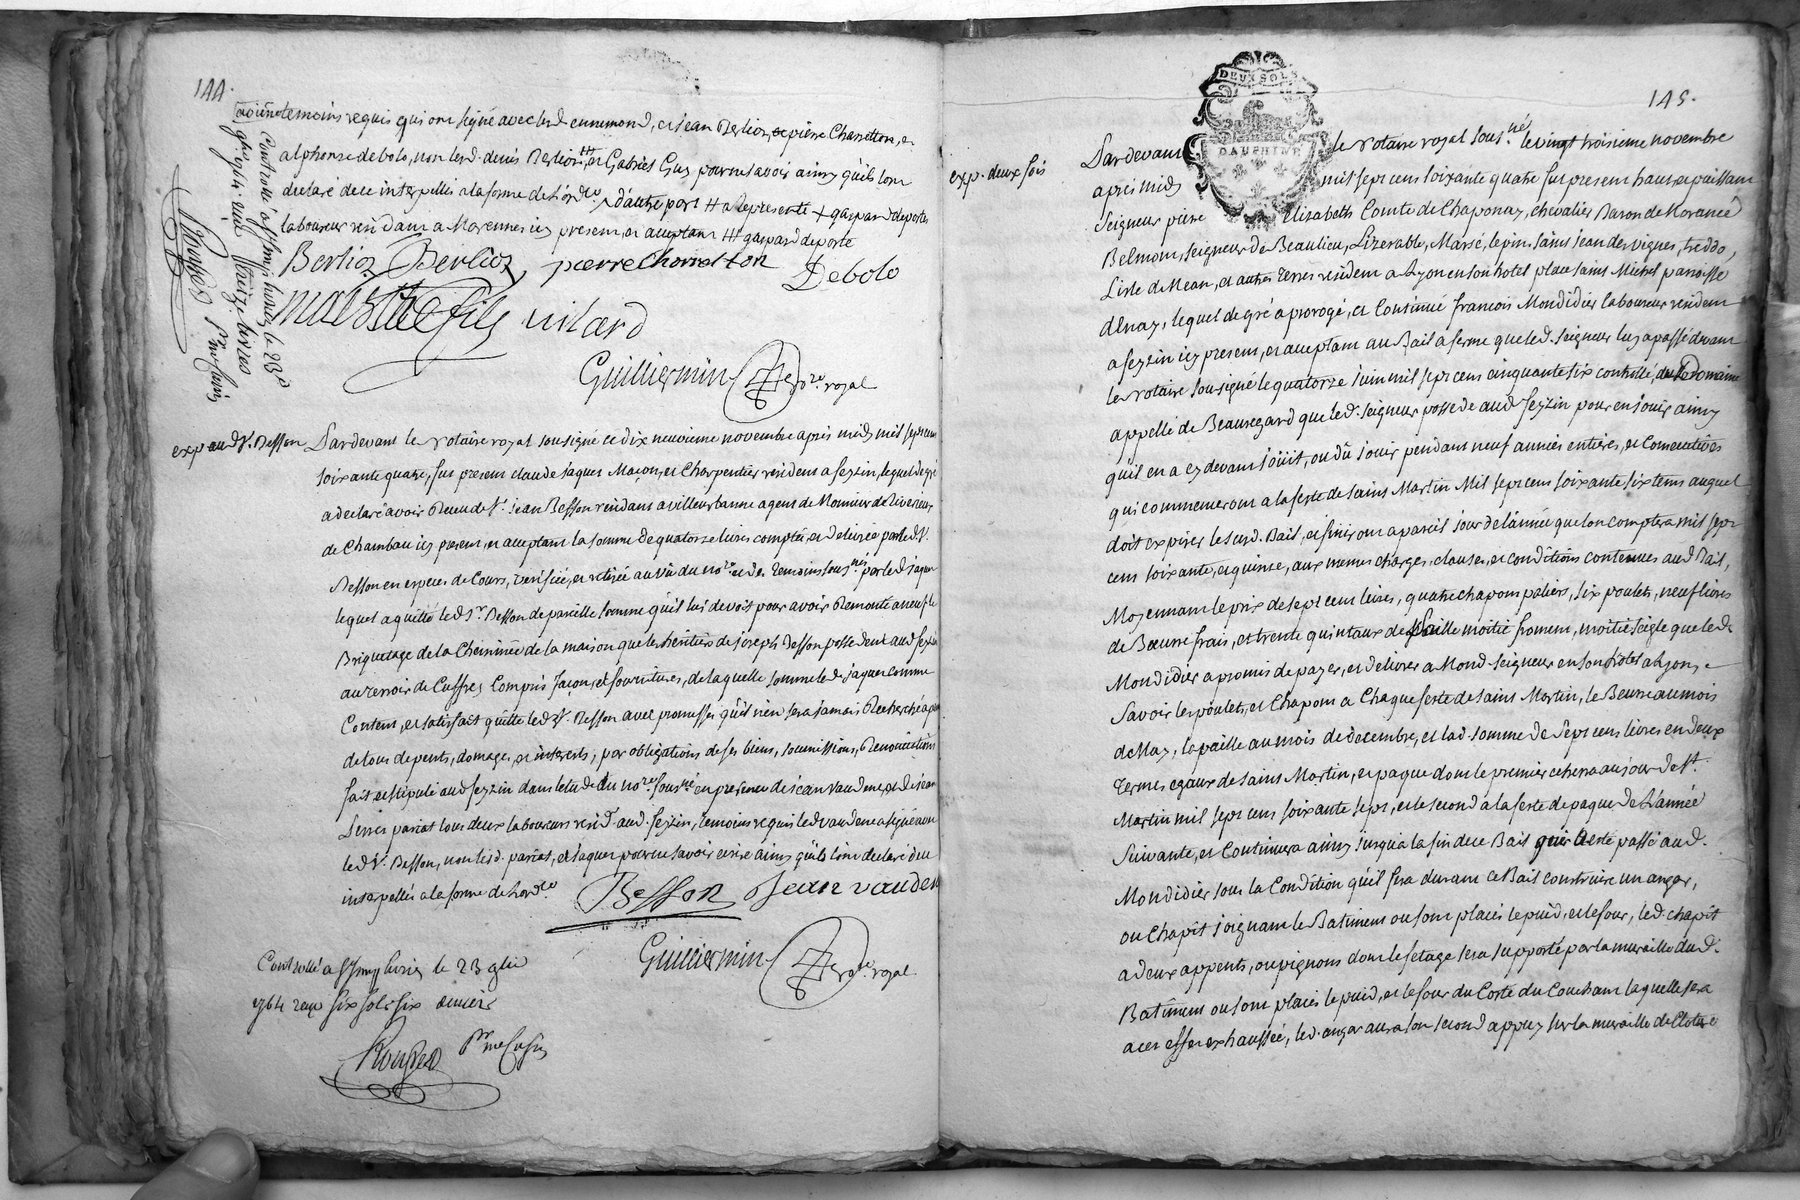 144.
temoins requis qui ont signé avec led ennemond, et jean Berlioz et pierre Charretton, et
alphonse debolo, non lesd. denis Berlioz ttt et Gabriel Guy pour ne savoir ainsy qu'ils l'ont
declaré de ce interpellés a la forme de l'ordce. d'autre part # a represente + gaspard deporte
laboureur resident a Marennes icy present, et acceptant ttt gaspard deporte
Berlioz Berlioz, pierre Charretton Debolo
vilard
Guilliermin nore. royal
Controllé a st simph
le 23e
9bre 1764 reçu treize livres
exp aud Sr. Besson Pardevant le Notaire royal sousigné ce dix neuvieme novembre après midy mil sept cent
soixante quatre, fut present claude jaques Maçon, et Charpentier resident a feyzin, lequel de gré
a declaré avoir Receu de Sr. jean Besson residant a villeurbanne agent de Monsieur de
de Chambau icy present, et acceptant la somme de quatorze livres comptée, et delivrée par led Sr.
Besson en especes de Cours, verifiée, et retirée au vû du nore. et des temoins sousnés. par led jaques
lequel a quitté led Sr Besson de pareille somme qu'il lui devoit pour avoir Remonté a neuf le
Briquetage de la Cheminée de la maison que les heritiers de joseph Besson possedent aud feyzin
au terroir de Cuffres Compris façon, et fournitures, de laquelle somme led. jaques comme
Content, et satisfait quitte led Sr. Besson avec promesses qu'il n'en sera jamais Recherché a peine
de tous depents, domages, et interests, par obligations de ses biens, soumissions, Renonciations
fait et stipulé aud feyzin dans l'etude du nore. sousné en presence de jean vaudene, et de jean
pariat tous deux laboureurs resid. aud. feyzin, temoins requis led vaudene a signé avec
led Sr. Besson, non lesd. pariat, et jaques pour ne savoir ecrire ainsy qu'ils l'ont declaré de ce
interpellés a la forme de l'ordce. Besson Jean vauden
Guilliermin nore. royal
Controllé a st simph le 23 9bre
1764 reçu six sols six deniers
145.
DEUX SOLS
DAUPHINE
exp. deux fois
Pardevant le Notaire royal sousné. le vingt troisieme novembre
après midy mil sept cens soixante quatre fut present haut et puissant
Seigneur pierre Elizabeth Comte de Chaponay, chevalier Baron de Morancé
Belmont, seigneur de Beaulieu, Lizerable, Marsé, lepin, saint jean des vignes, treddo,
Lisle de Mean, et autres terres resident a Lyon en son hotel place saint Michel paroisse
d'Enay, lequel de gré a prorogé, et Continué françois Mondidier laboureur resident
a feyzin icy present, et acceptant au Bail a ferme que led. seigneur luy a passé devant
le notaire sousigné le quatorze juin mil sept cens cinquante six controllé, du Domaine
appellé de Beauregard que led. seigneur possede aud feyzin pour en jouir ainsy
qu'il en a cy devant jouit, ou dû jouir pendant neuf années entieres, et Consecutives
qui commenceront a la feste de saint Martin Mil sept cens soixante six tems auquel
doit expirer le susd. Bail, et finiront a pareil jour de l'année que l'on comptera mil sept
cens soixante, et quinze, aux memes charges, clauses, et conditions contenues aud Bail,
Moyennant le prix de sept cent livres, quatre chapons paliers, six poulets, neuf livres
de Beurre frais, et trente quintaux de paille moitié froment, moitié seigle que led.
Mondidier a promis de payer, et delivrer a Mond. seigneur en son hotel a Lyon,
Savoir les poulets, et Chapons a Chaque feste de saint Martin, le Beurre au mois
de May, la paille au mois de decembre, et lad. somme de sept cens livres en deux
Termes egaux de saint Martin, et paque dont le premier echera au jour de st.
Martin mil sept cens soixante sept, et le second a la feste de paque de L'année
Suivante, et Continuera ainsy jusqu'a la fin de ce Bail qui a esté passé aud.
Mondidier sous la Condition qu'il sera durant ce Bail construire un angar,
ou Chapit joignant le Batiment ou sont placés le puid, et le four, led. chapit
a deux appents, ou pignons dont le fetage sera supporté par la muraille dud.
Batiment ou sont placés le puid, et le four du Costé du Couchant laquelle sera
a cet effet exhaussée, led. angar aura son second appuy sur la muraille de Cloture